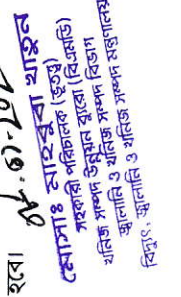 হবে।
মোসাঃ মাহবুবা খাতুন
সহকারী পরিচালক (ভূতত্ত্ব)
খনিজ সম্পদ উন্নয়ন ব্যুরো (বিএমডি)
জ্বালানি ও খনিজ সম্পদ বিভাগ
বিদ্যুৎ, জ্বালানি ও খনিজ সম্পদ মন্ত্রণালয়